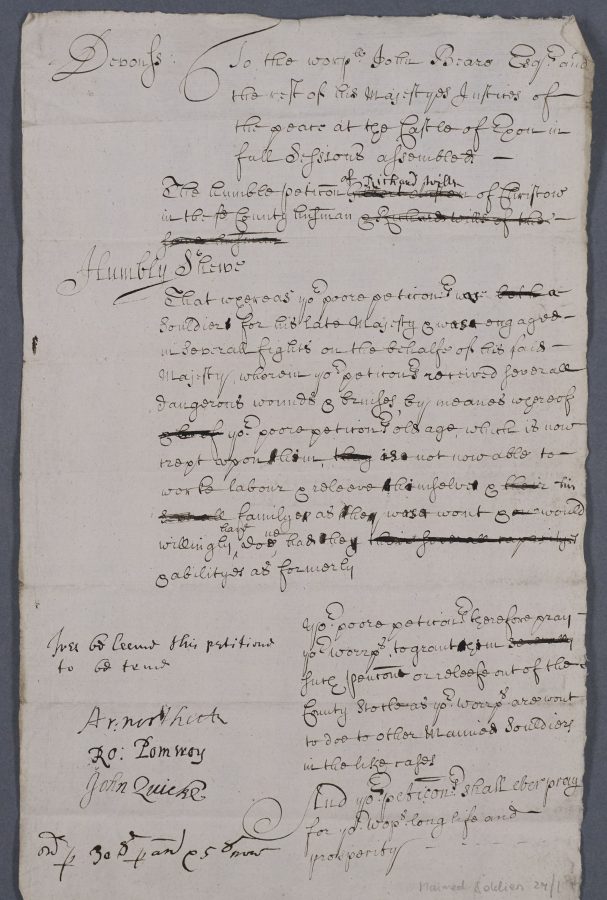 Devonss
To the worpll John Beare Esqr and
the rest of his Majestyes Justices of
the peace at the Castle of Exon in
full Sessions assembled —
of Richard Wills
The humble peticon of Christow
in the sd County husman & Richard Wills of the
same husman
Humbly Shewe
That whereas yor poore peticonr was both a
Souldier for his late Majesty & was engaged
in severall fights on the behalfe of his said
Majesty, wherein yor peticonr received severall
dangerous wounds & bruises, by meanes whereof
yor poore peticonrs old age, which is now
crept upon him, they is not now able to
worke labour & releeve himselve & their his
severall familye as he was wont & would
willingly have doe, had he their severall capacityes
& abilityes as formerly
yor poore peticonr therefore pray
yor worrps to grant him severally
such Pencons or releefe out of the
County Stocke as yor worrps are wont
to doe to other Maimed Souldiers
in the like cases
And yor peticonr shall ever pray
for yor worps long life and
prosperity
Wee beleeue this petitione
to be treue
Ro: Pomroy
John Quicke
30s p an
Maimed Soldiers 27/1